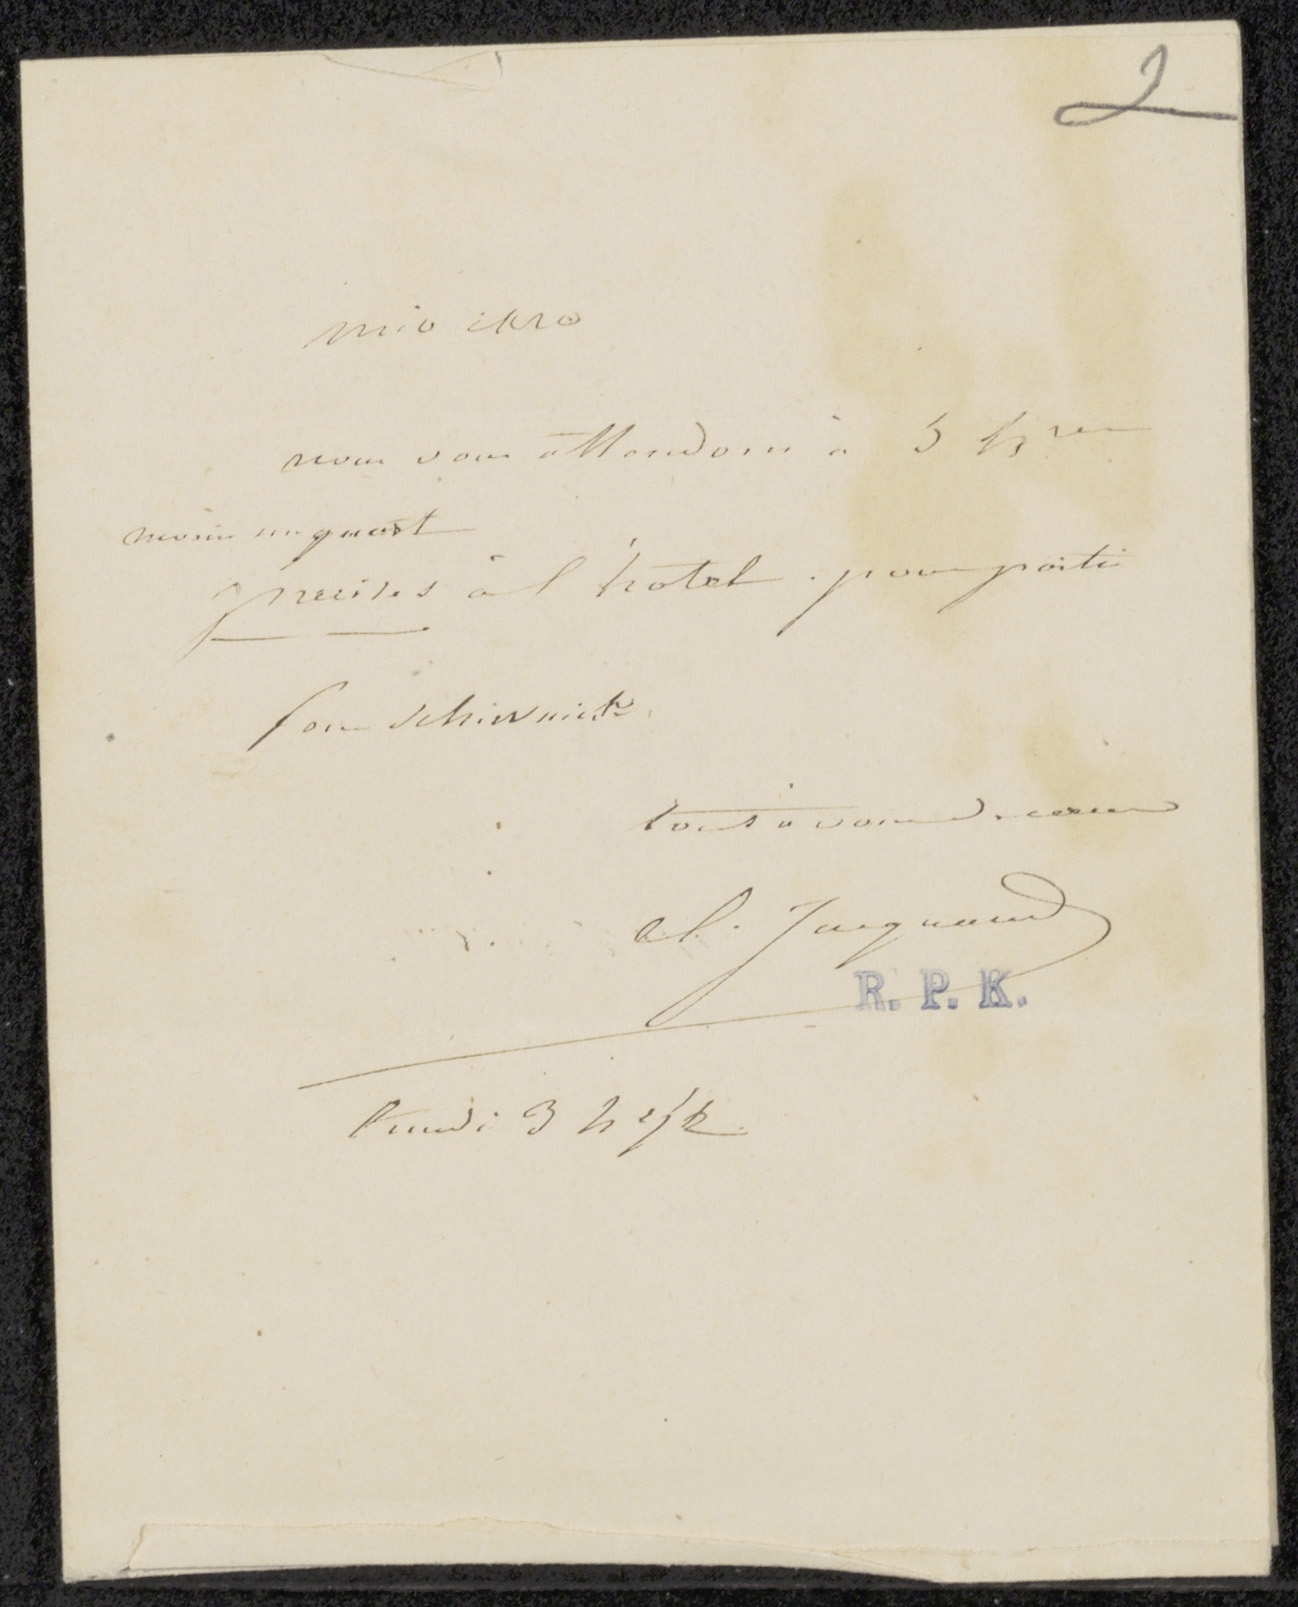 2
mio caro
nous vous attendons à 5 hres
moins un quart
précises à l'hotel. pour partir
pour
tout à vous de coeur
Cl. Jacquand
R. P. K.
lundi 3 h 1/2